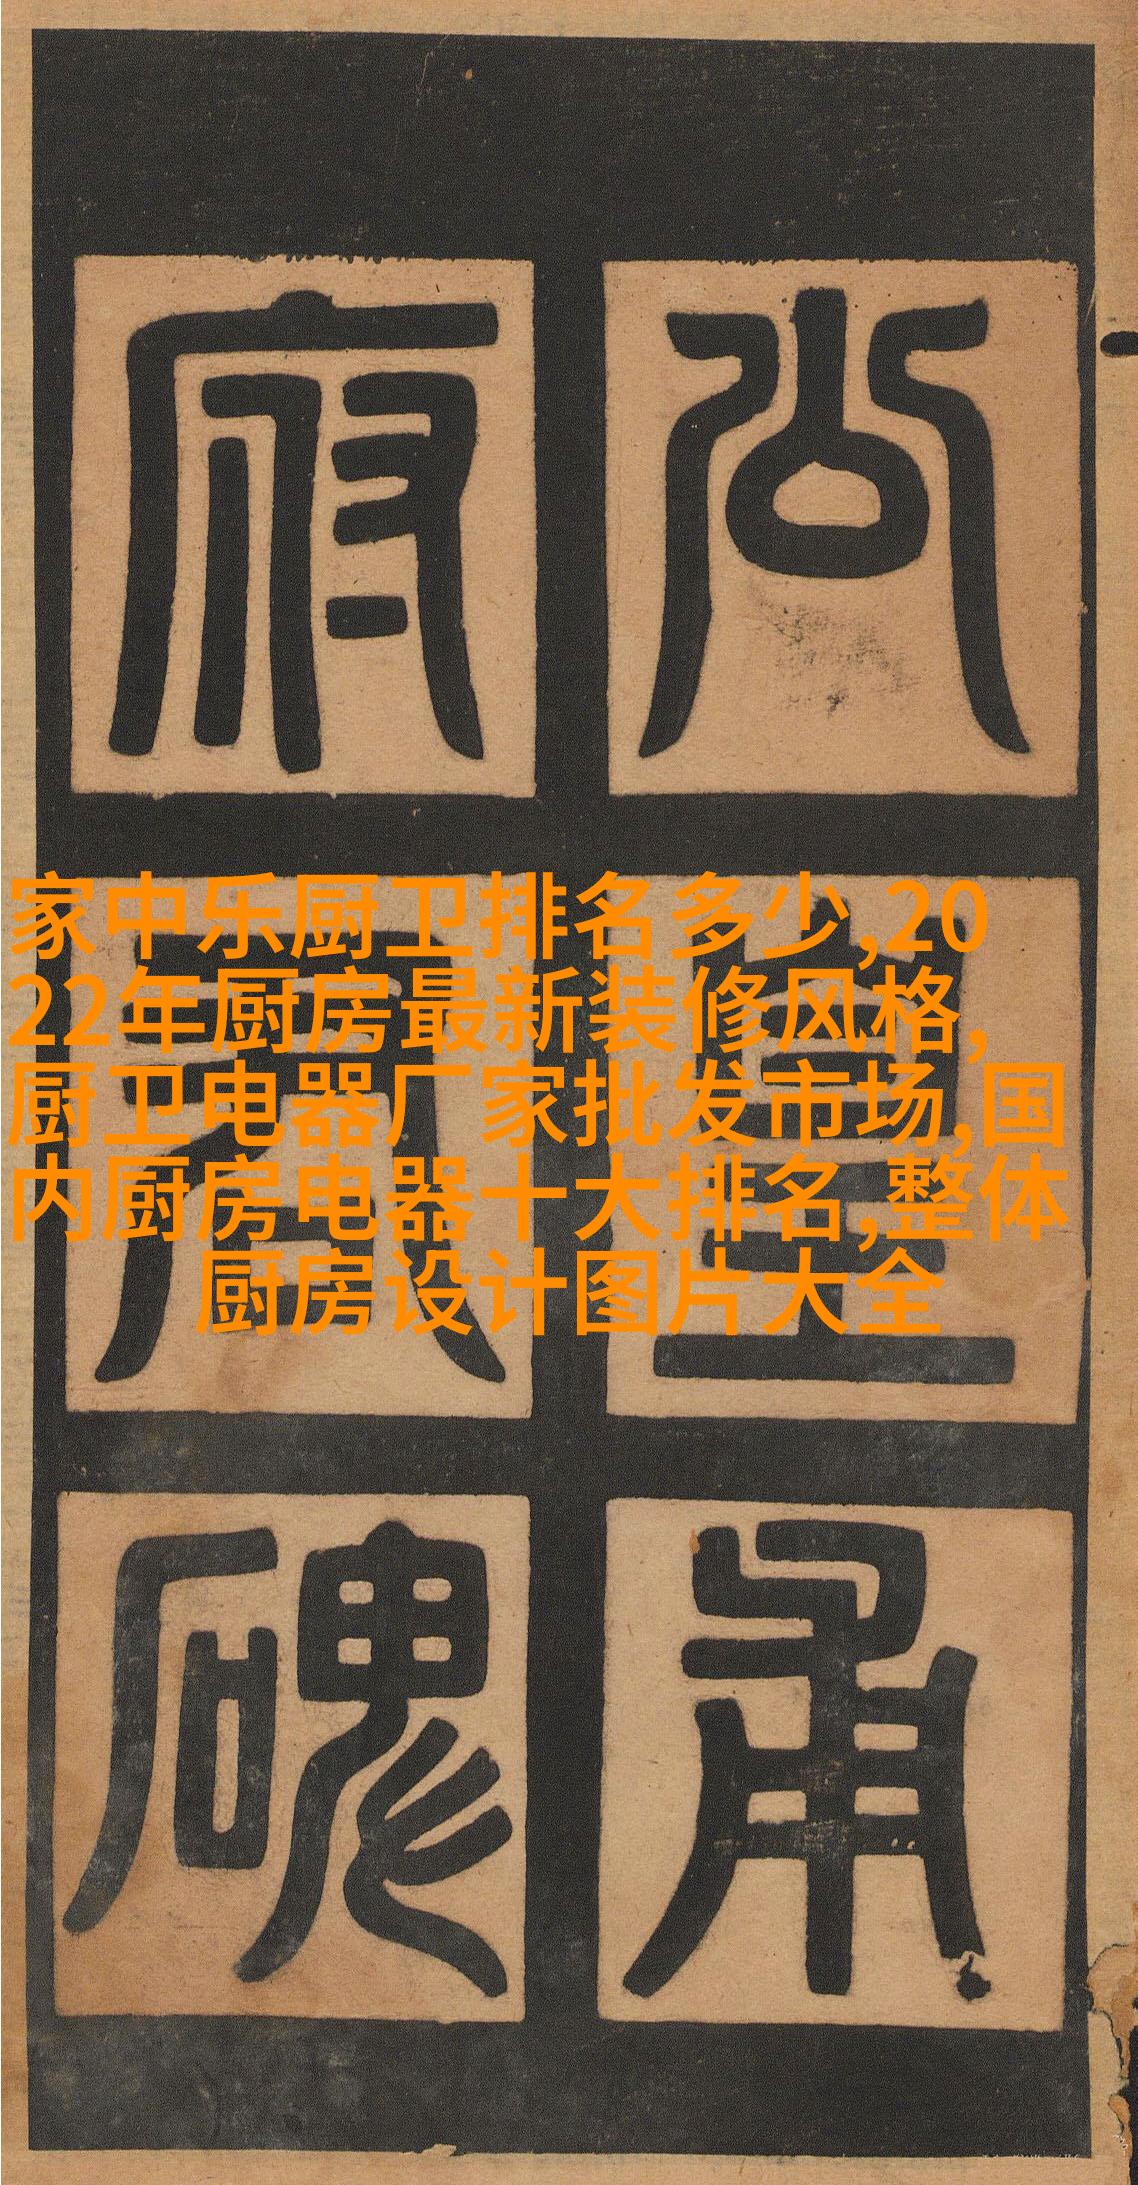 公皇甫
府君碑
家中乐厨卫排名多少,20
22年厨房最新装修风格,
厨卫电器厂家批发市场,国
内厨房电器十大排名,整体
厨房设计图片大全